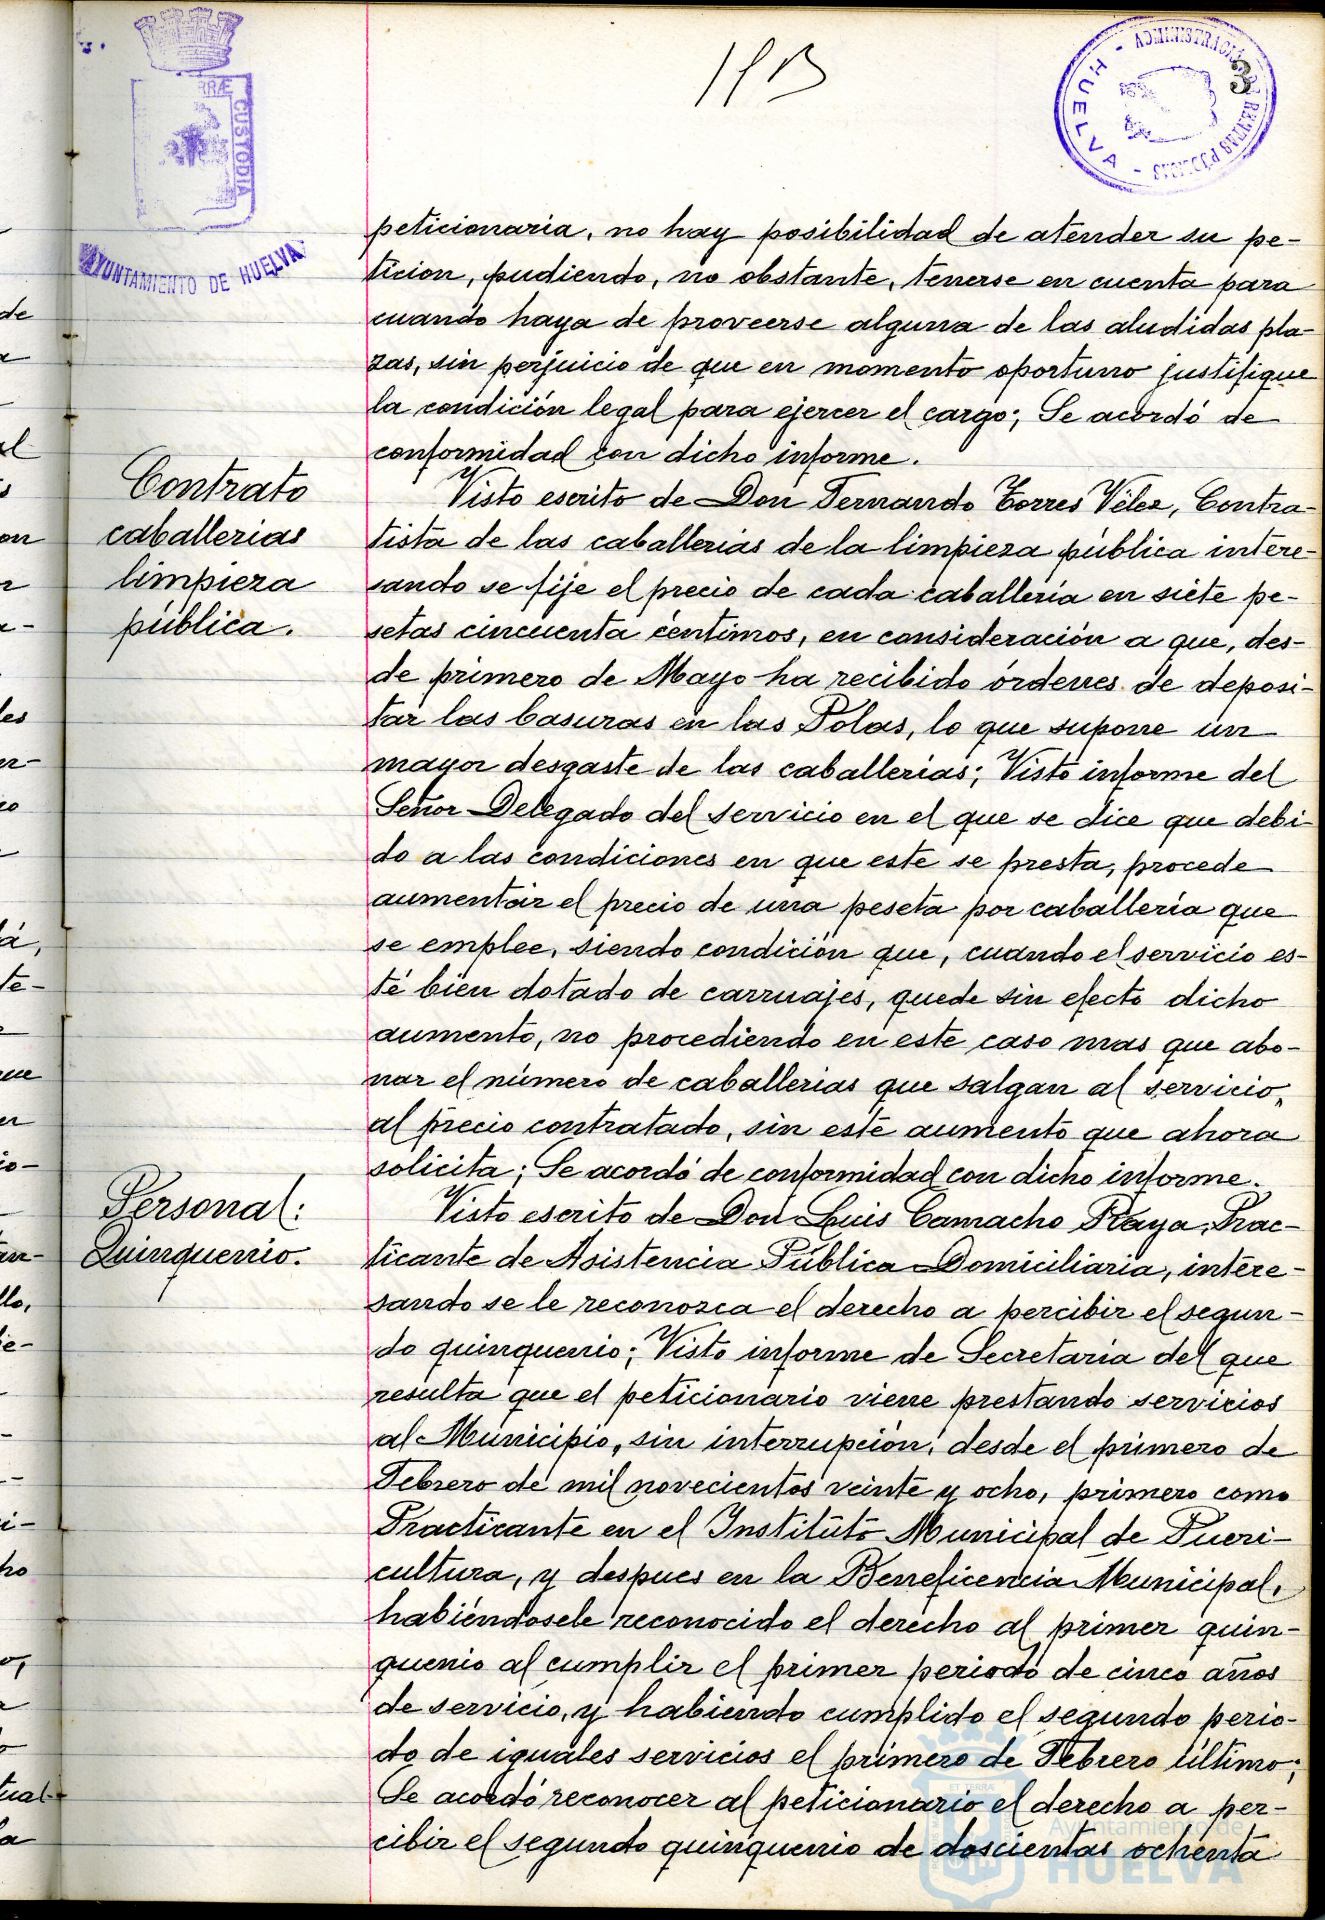 TERRÆ
CUSTODIA
AYUNTAMIENTO DE HUELVA
ADMINISTRACIÓN DE RENTAS PÚBLICAS
- HUELVA -
3
peticionaria, no hay posibilidad de atender su pe-
ticion, pudiendo, no obstante, tenerse en cuenta para
cuando haya de proveerse alguna de las aludidas pla-
zas, sin perjuicio de que en momento oportuno justifique
la condición legal para ejercer el cargo; Se acordó de
conformidad con dicho informe.
Contrato
caballerias
limpieza
pública.
Visto escrito de Don Fernando Torres Vélez, Contra-
tista de las caballerias de la limpieza pública intere-
sando se fije el precio de cada caballería en siete pe-
setas cincuenta céntimos, en consideración a que, des-
de primero de Mayo ha recibido órdenes de deposi-
tar las basuras en las Polas, lo que supone un
mayor desgaste de las caballerias; Visto informe del
Señor Delegado del servicio en el que se dice que debi-
do a las condiciones en que este se presta, procede
aumentar el precio de una peseta por caballería que
se emplee, siendo condición que, cuando el servicio es-
té bien dotado de carruajes, quede sin efecto dicho
aumento, no procediendo en este caso mas que abo-
nar el número de caballerias que salgan al servicio,
al precio contratado, sin este aumento que ahora
solicita; Se acordó de conformidad con dicho informe.
Personal:
Quinquenio.
Visto escrito de Don Luis Camacho Raya, Prac-
ticante de Asistencia Pública Domiciliaria, intere-
sando se le reconozca el derecho a percibir el segun-
do quinquenio; Visto informe de Secretaría del que
resulta que el peticionario viene prestando servicios
al Municipio, sin interrupción, desde el primero de
Febrero de mil novecientos veinte y ocho, primero como
Practicante en el Instituto Municipal de Pueri-
cultura, y despues en la Beneficencia Municipal,
habiéndosele reconocido el derecho al primer quin-
quenio al cumplir el primer periodo de cinco años
de servicio, y habiendo cumplido el segundo perio-
do de iguales servicios el primero de Febrero último;
Se acordó reconocer al peticionario el derecho a per-
cibir el segundo quinquenio de doscientas ochenta
Ayuntamiento de
HUELVA